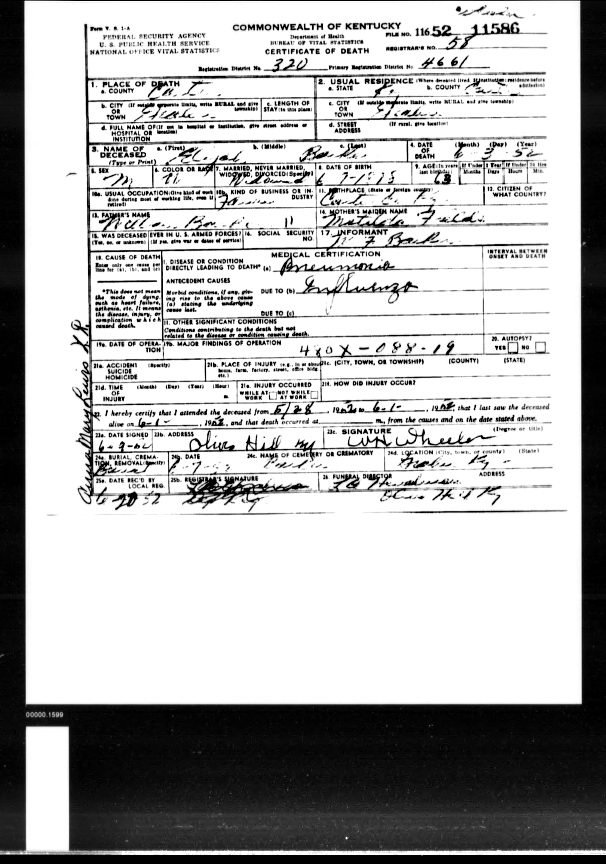 Form V. S. 1-A
FEDERAL SECURITY AGENCY
U. S. PUBLIC HEALTH SERVICE
NATIONAL OFFICE VITAL STATISTICS
COMMONWEALTH OF KENTUCKY
Department of Health
BUREAU OF VITAL STATISTICS
CERTIFICATE OF DEATH
FILE NO. 116 52 11586
REGISTRAR'S NO. 58
Registration District No. 320 Primary Registration District No. 4661
1. PLACE OF DEATH
a. COUNTY
2. USUAL RESIDENCE (Where deceased lived. If institution: residence before admission)
a. STATE Ky b. COUNTY
b. CITY (If outside corporate limits, write RURAL and give township)
OR
TOWN
c. LENGTH OF STAY (in this place)
c. CITY (If outside corporate limits, write RURAL and give township)
OR
TOWN
d. FULL NAME OF (If not in hospital or institution, give street address or location)
HOSPITAL OR
INSTITUTION
d. STREET ADDRESS (If rural, give location)
3. NAME OF DECEASED (Type or Print)
a. (First) Elijah b. (Middle) c. (Last) Barker
4. DATE OF DEATH (Month) (Day) (Year) 6 3 52
5. SEX M
6. COLOR OR RACE W
7. MARRIED, NEVER MARRIED, WIDOWED, DIVORCED (Specify) Widowed
8. DATE OF BIRTH
9. AGE (In years last birthday) 63 If Under 1 Year Months Days If Under 24 Hrs Hours Min.
10a. USUAL OCCUPATION (Give kind of work done during most of working life, even if retired)
10b. KIND OF BUSINESS OR INDUSTRY
Farmer
11. BIRTHPLACE (State or foreign country)
Carter Co Ky
12. CITIZEN OF WHAT COUNTRY?
13. FATHER'S NAME
William Barker
14. MOTHER'S MAIDEN NAME
Matilda Fields
15. WAS DECEASED EVER IN U. S. ARMED FORCES?
(Yes, no, or unknown) (If yes, give war or dates of service)
16. SOCIAL SECURITY NO.
17. INFORMANT
Barker
18. CAUSE OF DEATH
Enter only one cause per line for (a), (b), and (c)
MEDICAL CERTIFICATION
INTERVAL BETWEEN ONSET AND DEATH
I. DISEASE OR CONDITION
DIRECTLY LEADING TO DEATH* (a) Pneumonia
*This does not mean the mode of dying, such as heart failure, asthenia, etc. It means the disease, injury, or complication which caused death.
ANTECEDENT CAUSES
Morbid conditions, if any, giving rise to the above cause (a) stating the underlying cause last.
DUE TO (b) Influenza
DUE TO (c)
II. OTHER SIGNIFICANT CONDITIONS
Conditions contributing to the death but not related to the disease or condition causing death.
19a. DATE OF OPERATION
19b. MAJOR FINDINGS OF OPERATION
480X-088-19
20. AUTOPSY?
YES NO
21a. ACCIDENT (Specify)
SUICIDE
HOMICIDE
21b. PLACE OF INJURY (e.g., in or about home, farm, factory, street, office bldg., etc.)
21c. (CITY, TOWN, OR TOWNSHIP) (COUNTY) (STATE)
21d. TIME OF INJURY (Month) (Day) (Year) (Hour) m.
21e. INJURY OCCURRED
WHILE AT WORK NOT WHILE AT WORK
21f. HOW DID INJURY OCCUR?
22. I hereby certify that I attended the deceased from 5/28, 1952 to 6-1-, 1952, that I last saw the deceased
alive on 6-1-, 1952, and that death occurred at m., from the causes and on the date stated above.
23a. DATE SIGNED
23b. ADDRESS Olive Hill Ky
23c. SIGNATURE (Degree or title)
W H Wheeler
24a. BURIAL, CREMATION, REMOVAL (Specify)
Burial
24b. DATE
24c. NAME OF CEMETERY OR CREMATORY
24d. LOCATION (City, town, or county) (State)
Ky
25a. DATE REC'D BY LOCAL REG.
6-20 52
25b. REGISTRAR'S SIGNATURE
26. FUNERAL DIRECTOR ADDRESS
Olive Hill Ky
00000.1599